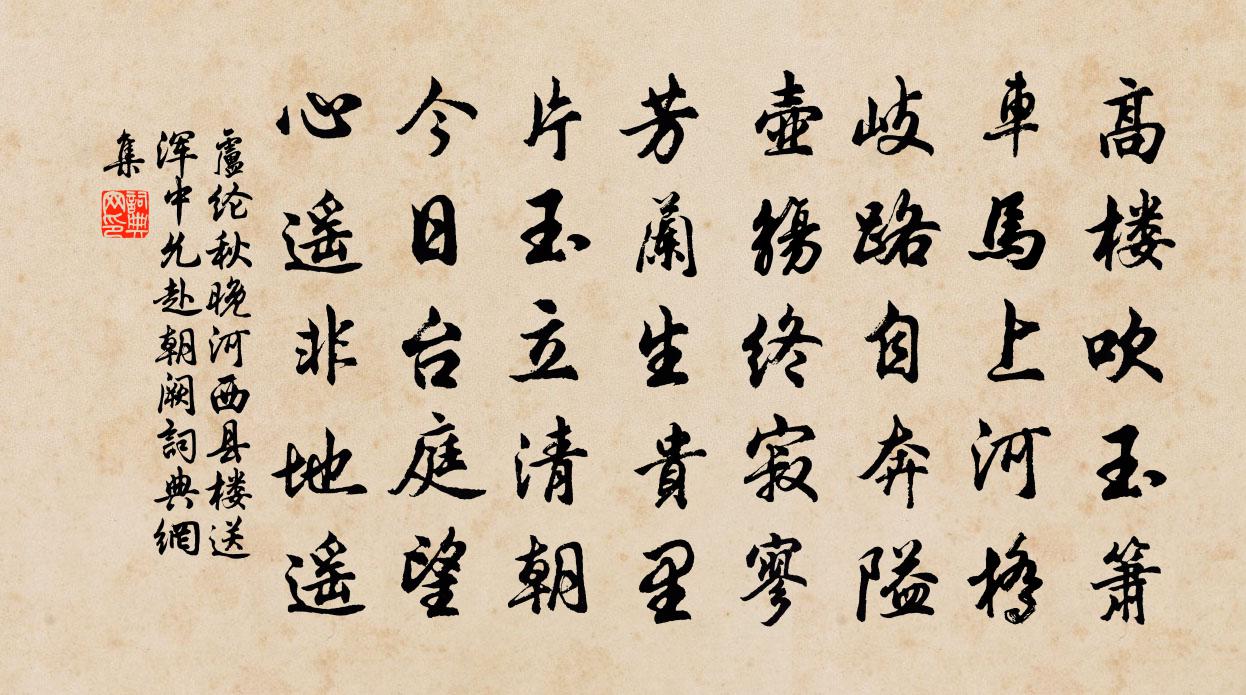 高楼吹玉箫
車馬上河橋
岐路自奔隘
壺觴終寂寥
芳蘭生貴里
片玉立清朝
今日台庭望
心遥非地遥
盧纶秋晚河西县楼送
渾中允赴朝阙詞典網
集
詞典网印